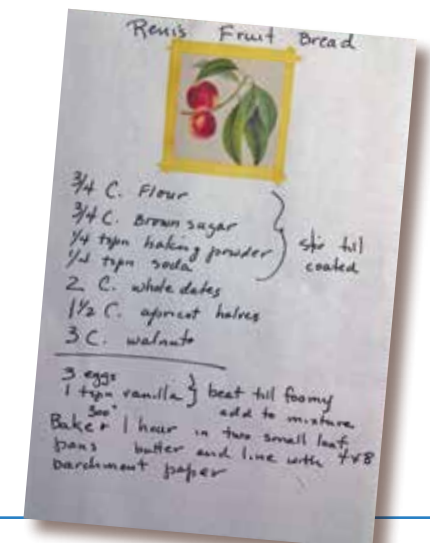 Reni's Fruit Bread
3/4 C. Flour
3/4 C. Brown sugar
1/4 tspn baking powder
1/4 tspn soda
stir til
coated
2 C. whole dates
1 1/2 C. apricot halves
3 C. walnuts
3 eggs
1 tspn vanilla } beat til foamy
add to mixture
300°
Bake 1 hour in two small loaf
pans butter and line with 4x8
parchment paper